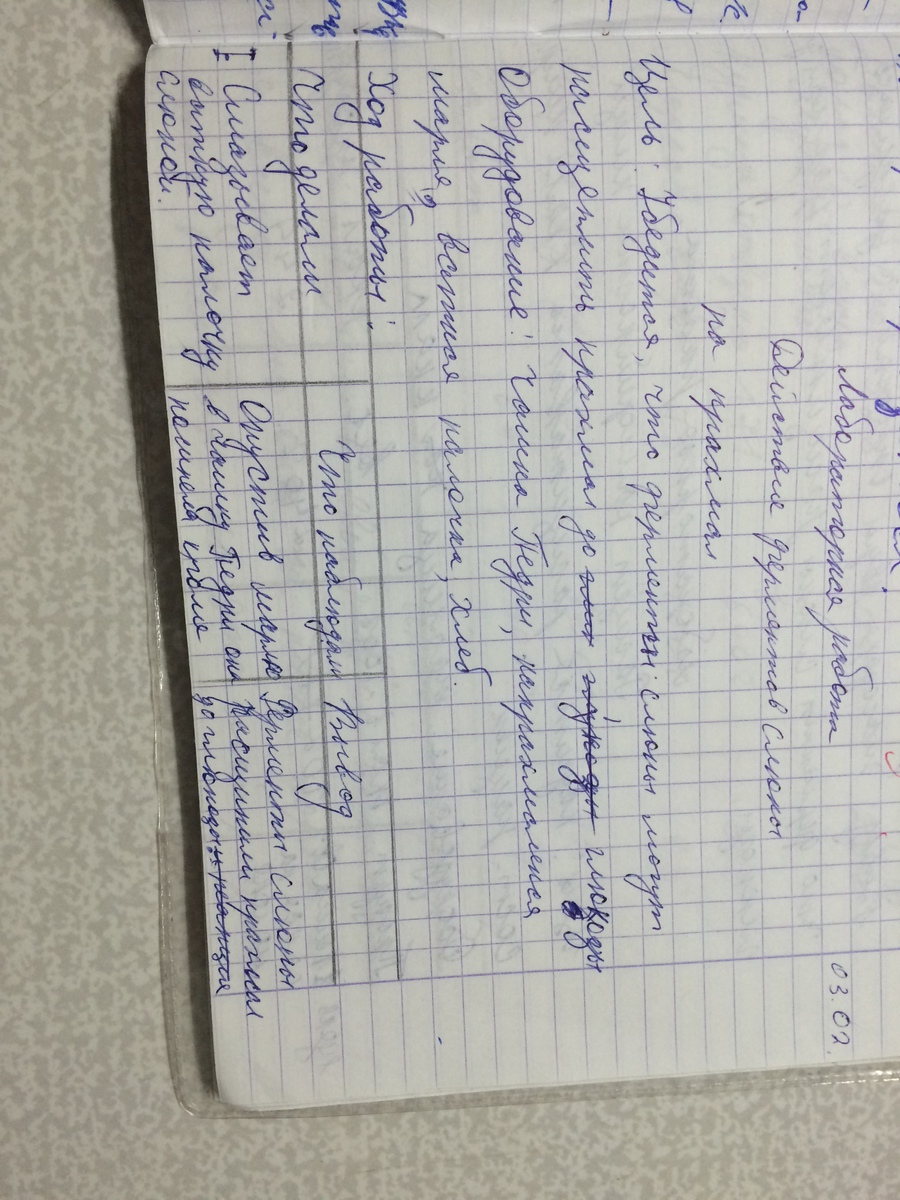 03.02.
Лабораторная работа
Действие ферментов слюны
на крахмал
Цель: Убедится, что ферменты слюны могут
расщеплить крахмал до глюкозы
Оборудование: Чашка Педри, накрахмаленая
марля, ватная палочка, хлеб.
Ход работы:
Что делали
Что наблюдали
Вывод
I Смазывает
ватную палочку
слюной.
Опустив марлю
в чашку Педри она
Ферменты слюны
расщипили крахмал
до глюкозы